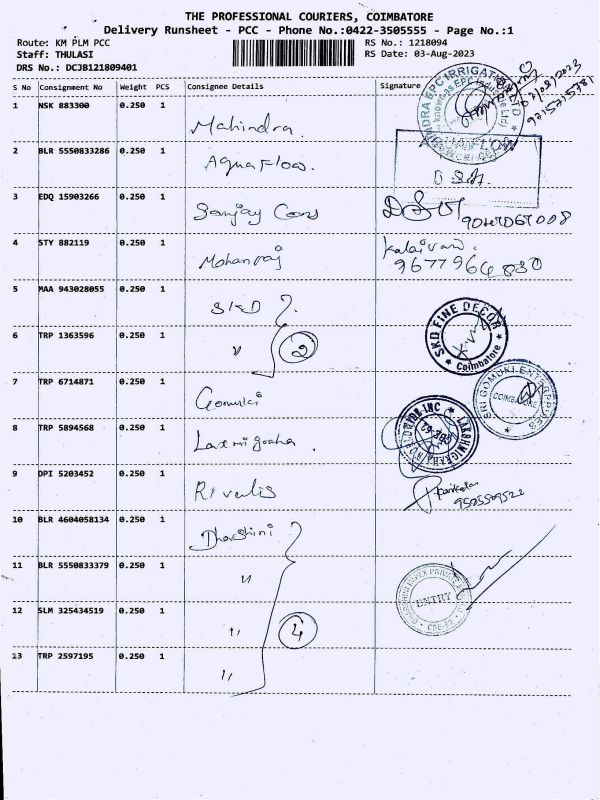 THE PROFESSIONAL COURIERS, COIMBATORE
Delivery Runsheet - PCC - Phone No.:0422-3505555 - Page No.:1
Route: KM PLM PCC RS No.: 1218094
Staff: THULASI RS Date: 03-Aug-2023
DRS No.: DCJB121809401
S No Consignment No Weight PCS Consignee Details Signature
1 NSK 883300 0.250 1 Mahindra
2 BLR 5550833286 0.250 1 Aquaflow.
3 EDQ 15903266 0.250 1 Sanjay Cons
4 STY 882119 0.250 1 Mohanraj Kalaivani.
9677964830
5 MAA 943028055 0.250 1 SKD
6 TRP 1363596 0.250 1 " 2 SKD FINE DECOR Coimbatore
7 TRP 6714871 0.250 1 Gomuki SRI GOMUKI ENTERPRISES COIMBATORE
8 TRP 5894568 0.250 1 Laxmigraha
9 DPI 5203452 0.250 1 Rivulis
9525509522
10 BLR 4604058134 0.250 1 Dharshini
11 BLR 5550833379 0.250 1 " ENTRY
12 SLM 325434519 0.250 1 " 4
13 TRP 2597195 0.250 1 "